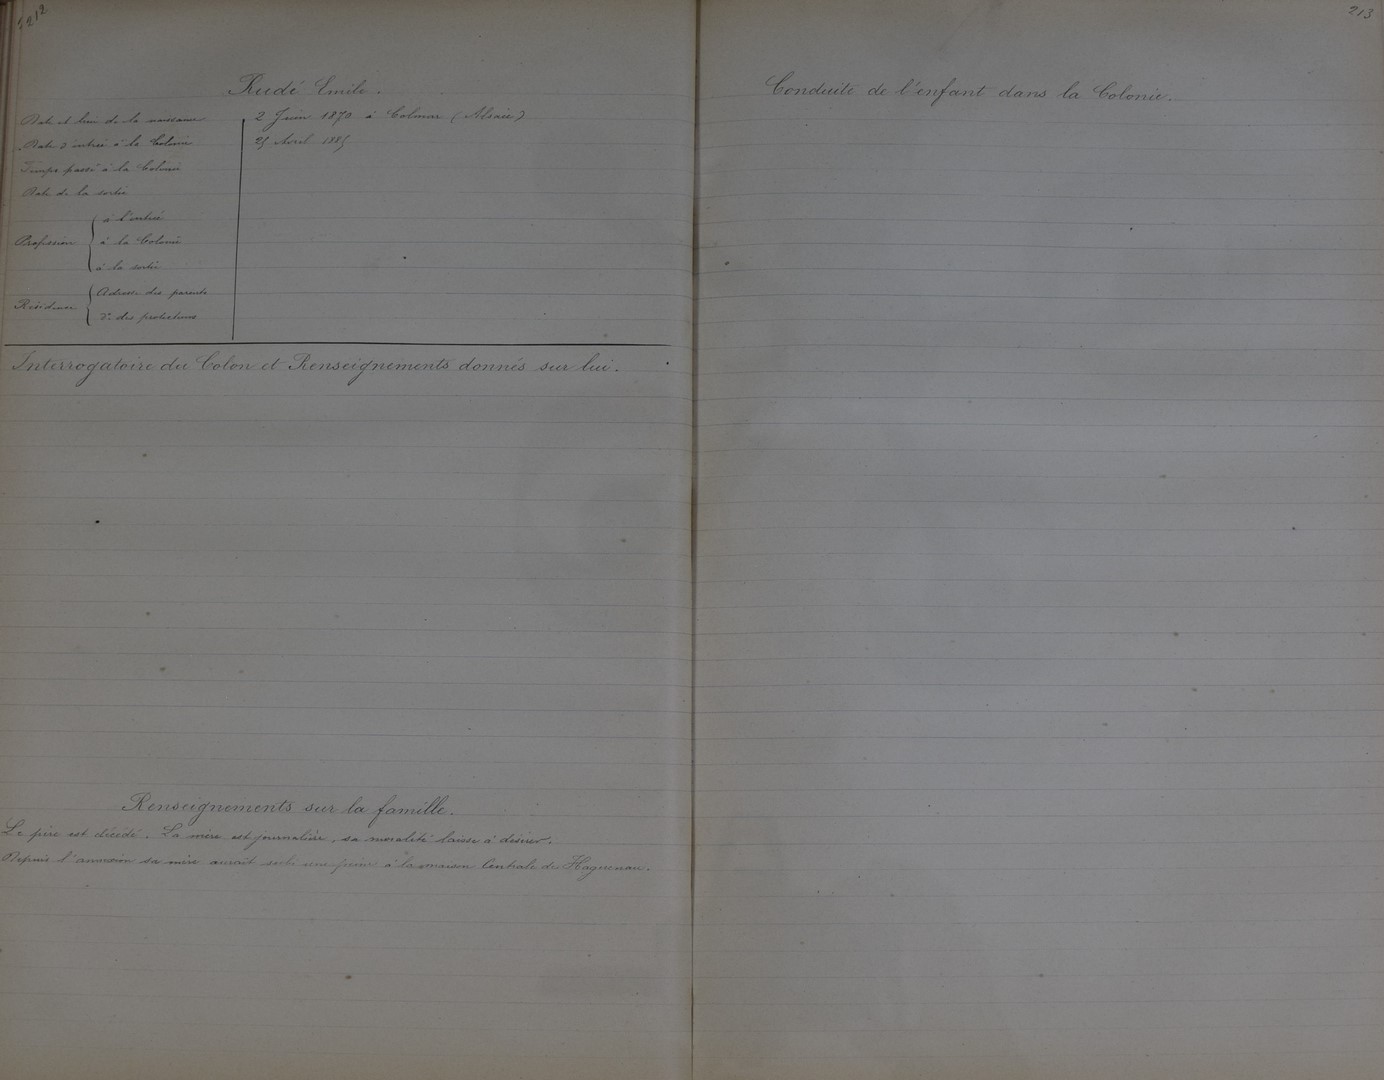 212
Rudé Emile.
Date et lieu de la naissance 2 Juin 1870 à Colmar (Alsace)
Date d'entrée à la Colonie 25 Avril 1885
Temps passé à la Colonie
Date de la sortie
Profession
à l'entrée
à la Colonie
à la sortie
Résidence
Adresse des parents
d° des protecteurs
Interrogatoire du Colon et Renseignements donnés sur lui.
Renseignements sur la famille.
Le père est décédé. La mère est journalière, sa moralité laisse à désirer.
Depuis l'annexion sa mère aurait subi une peine à la maison Centrale de Haguenau.
213
Conduite de l'enfant dans la Colonie.